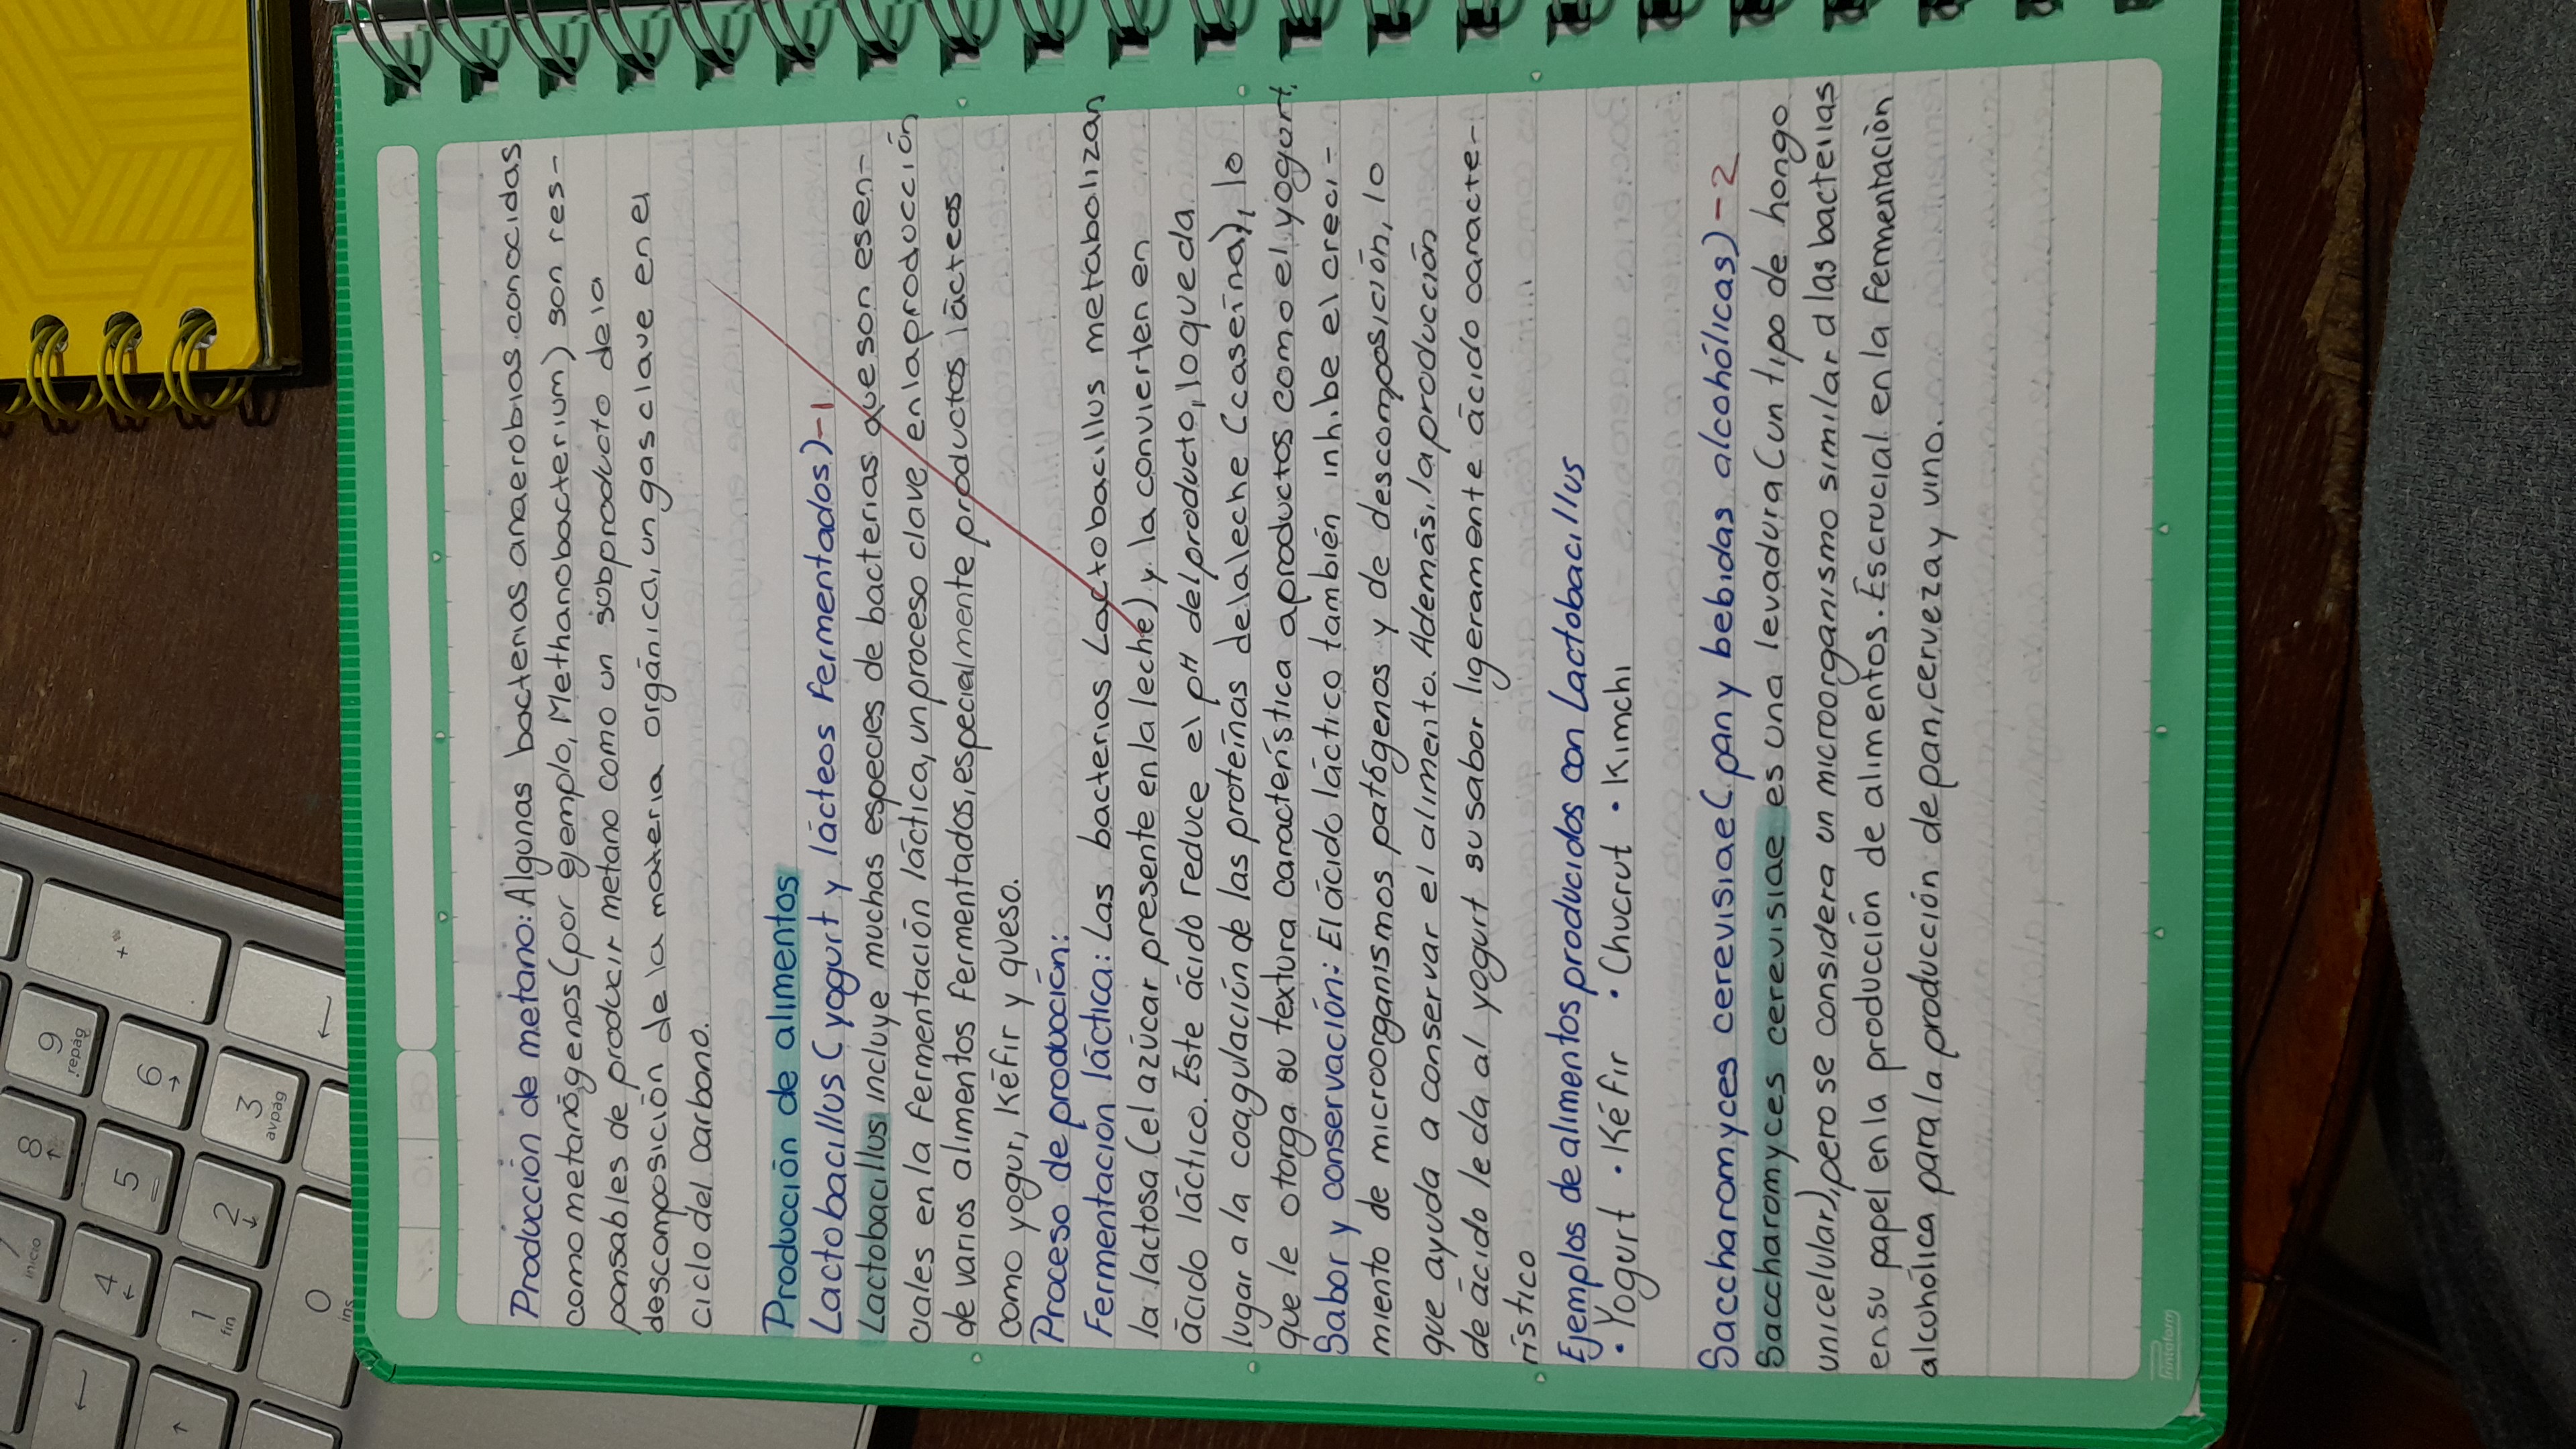 Producción de metano: Algunas bacterias anaerobias conocidas
como metanógenos (por ejemplo, Methanobacterium) son res-
ponsables de producir metano como un subproducto de la
descomposición de la materia orgánica, un gas clave en el
ciclo del carbono.
Producción de alimentos
Lactobacillus (yogurt y lácteos fermentados) - 1
Lactobacillus incluye muchas especies de bacterias que son esen-
ciales en la fermentación láctica, un proceso clave en la producción
de varios alimentos fermentados, especialmente productos lácteos
como yogur, kéfir y queso.
Proceso de producción:
Fermentación láctica: Las bacterias Lactobacillus metabolizan
la lactosa (el azúcar presente en la leche) y la convierten en
ácido láctico. Este ácido reduce el pH del producto, lo que da
lugar a la coagulación de las proteínas de la leche (caseína), lo
que le otorga su textura característica a productos como el yogurt.
Sabor y conservación: El ácido láctico también inhibe el creci-
miento de microorganismos patógenos y de descomposición, lo
que ayuda a conservar el alimento. Además, la producción
de ácido le da al yogurt su sabor ligeramente ácido caracte-
rístico
Ejemplos de alimentos producidos con Lactobacillus
• Yogurt • Kéfir • Chucrut • Kimchi
Saccharomyces cerevisiae (pan y bebidas alcohólicas) - 2
Saccharomyces cerevisiae es una levadura (un tipo de hongo
unicelular), pero se considera un microorganismo similar a las bacterias
en su papel en la producción de alimentos. Es crucial en la fermentación
alcohólica para la producción de pan, cerveza y vino.
Printaform
9
repág
8
7
inicio
+
6
5
4
3
avpág
2
1
fin
0
ins